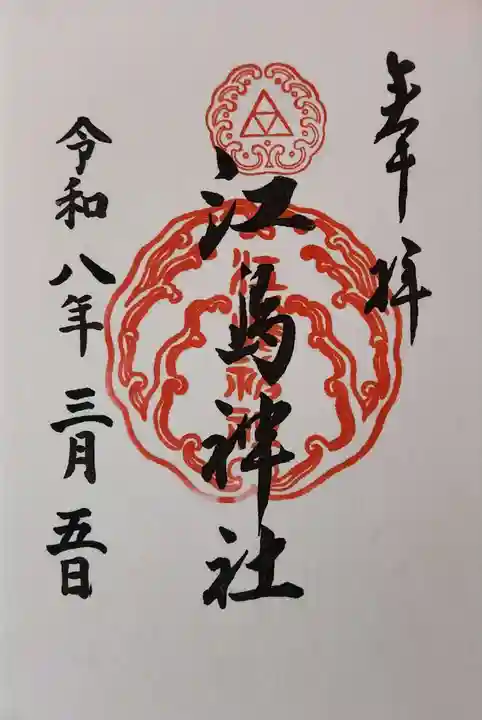 奉拝
江島神社
令和八年三月五日